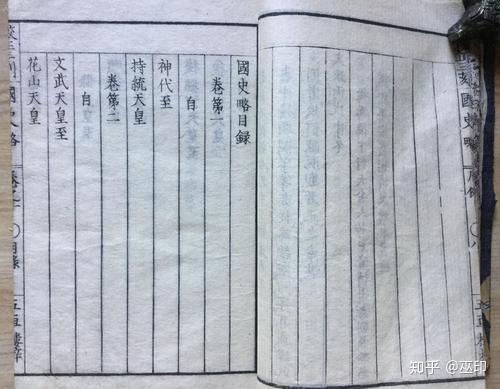 刻國史略
國史略目録
卷第一
自
神代至
持統天皇
卷第二
自
文武天皇至
花山天皇
國史略 卷之一 〇目錄 五車樓
知乎 @巫印